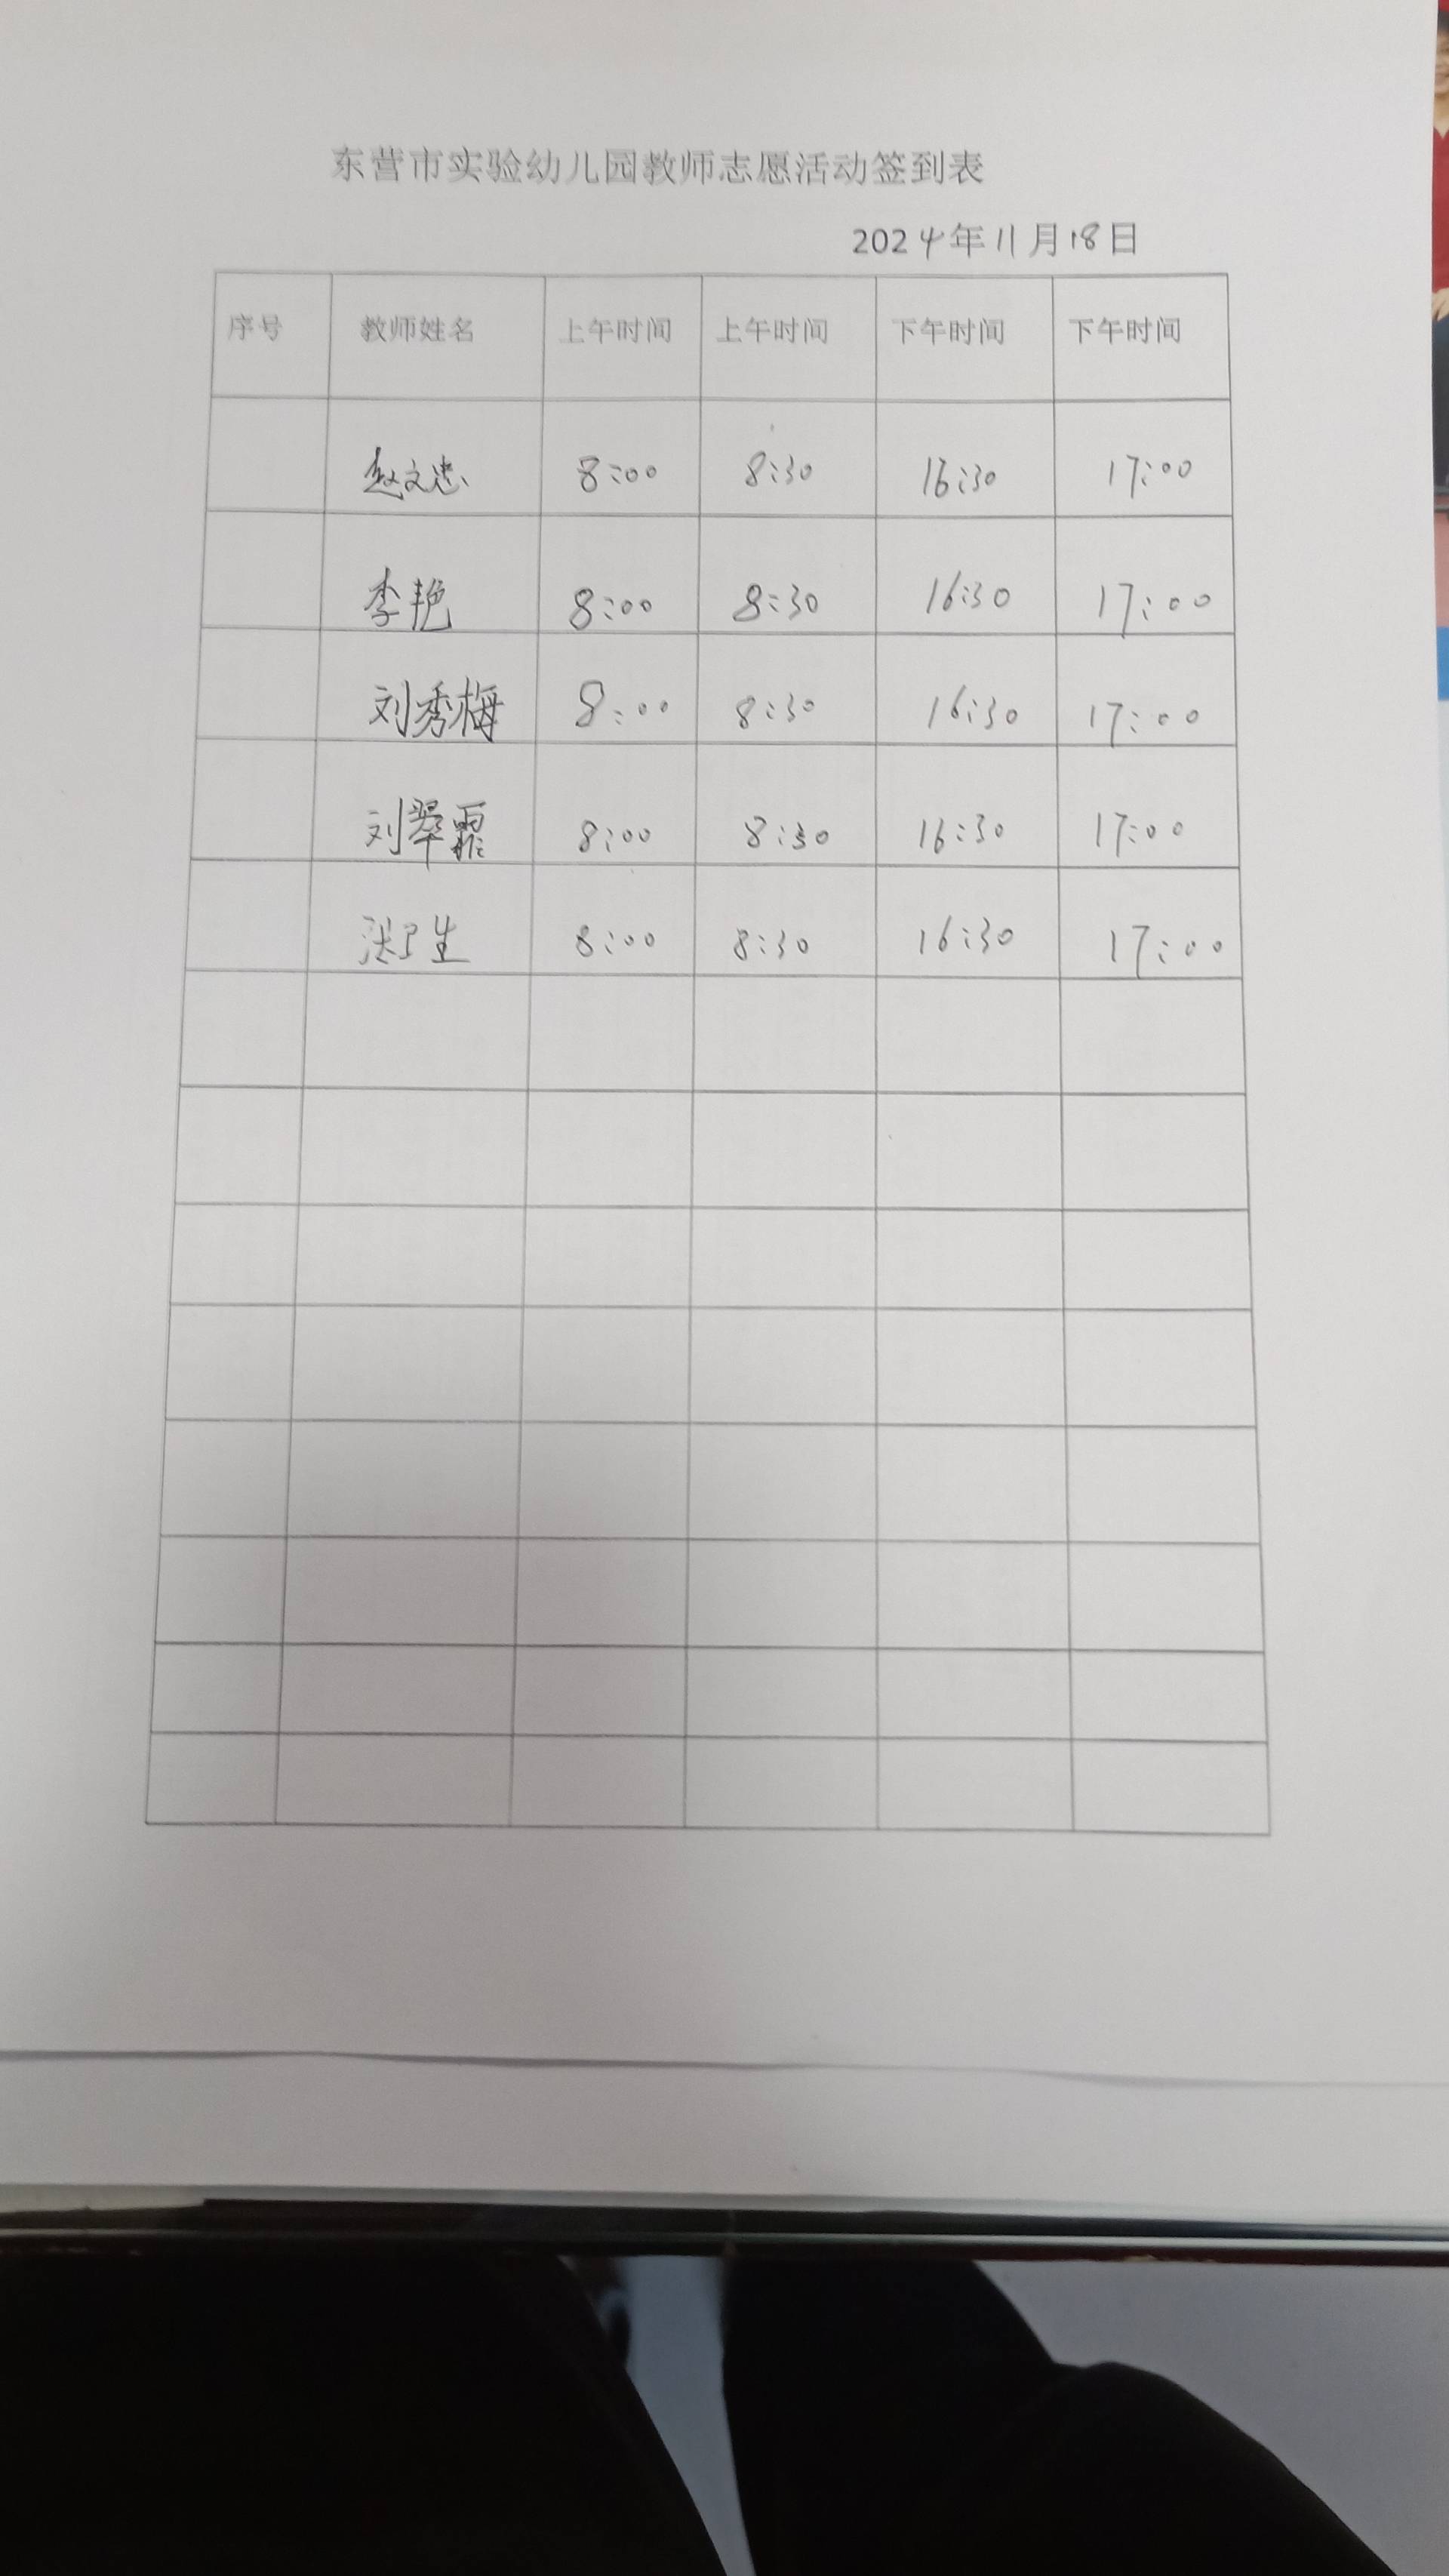 东营市实验幼儿园教师志愿活动签到表
2024年11月18日
序号 教师姓名 上午时间 上午时间 下午时间 下午时间
赵文忠 8:00 8:30 16:30 17:00
李艳 8:00 8:30 16:30 17:00
刘秀梅 8:00 8:30 16:30 17:00
刘翠霞 8:00 8:30 16:30 17:00
8:00 8:30 16:30 17:00